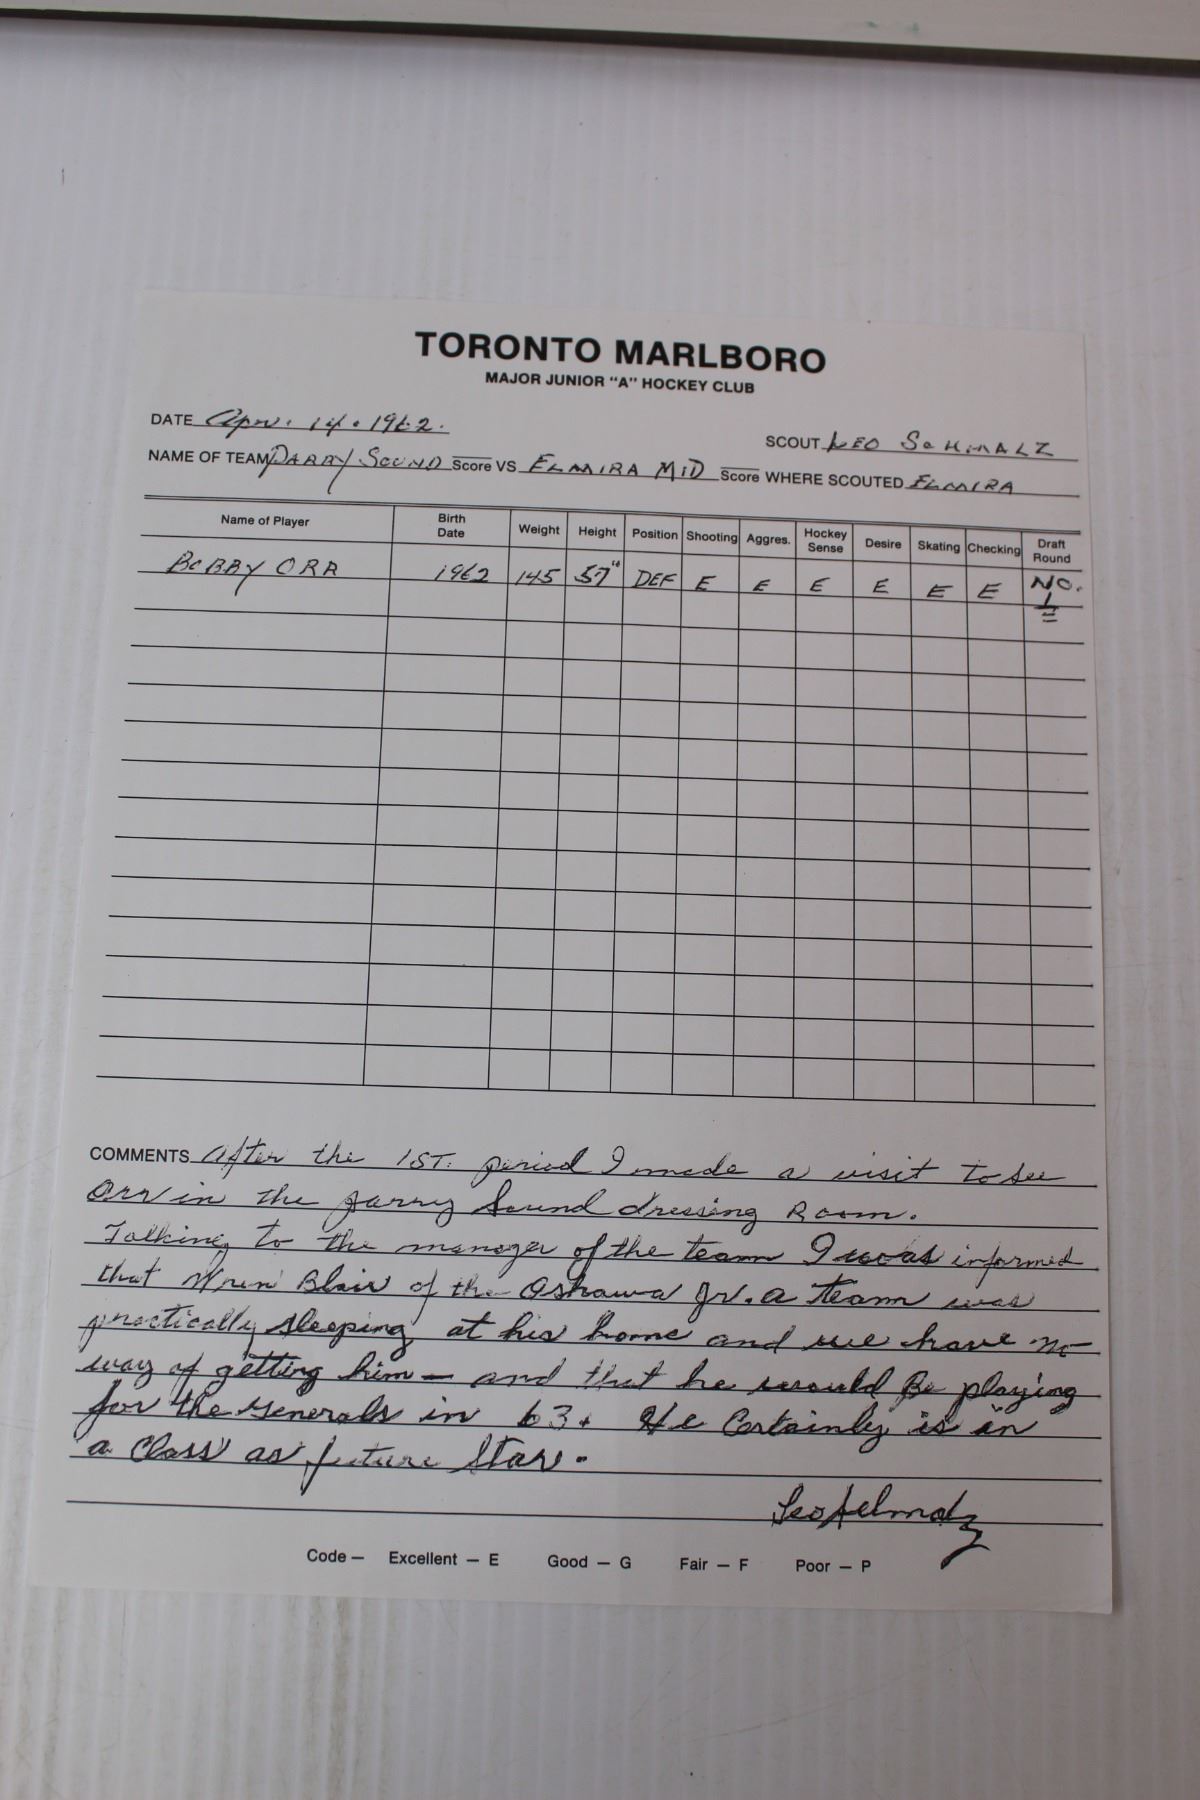 TORONTO MARLBORO
MAJOR JUNIOR "A" HOCKEY CLUB
DATE Apr. 14. 1962.
SCOUT LEO SCHMALZ
NAME OF TEAM PARRY SOUND Score VS ELMIRA MID Score WHERE SCOUTED ELMIRA
Name of Player Birth Date Weight Height Position Shooting Aggres. Hockey Sense Desire Skating Checking Draft Round
BOBBY ORR 1962 145 57" DEF E E E E E E NO. 1
COMMENTS After the 1ST. period I made a visit to see
Orr in the parry Sound dressing Room.
Talking to the manager of the team I was informed
that Wren Blair of the Oshawa Jr. a team was
practically sleeping at his home and we have no
way of getting him — and that he would Be playing
for the Generals in 63. He Certainly is in
a Class as future Star.
Leo Schmalz
Code — Excellent — E Good — G Fair — F Poor — P